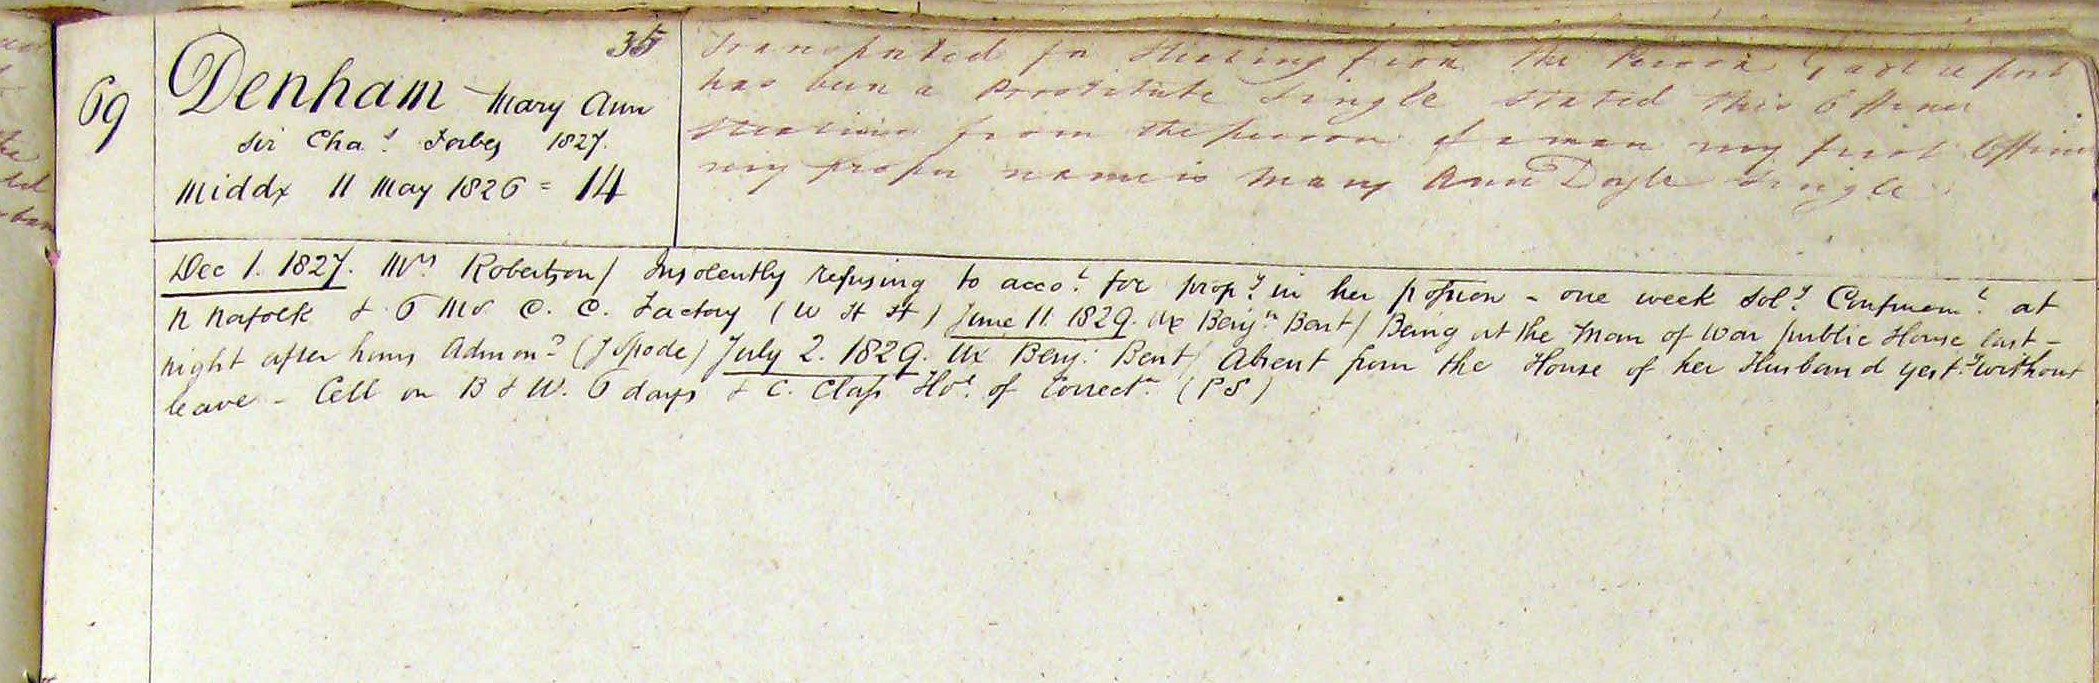 35
69
Denham Mary Ann
Sir Cha.s Forbes 1827.
Middx 11 May 1826 = 14
Transported for Stealing from the Person Gaol report
has been a Prostitute Single Stated this Offence
Stealing from the person of a man my first Offence
my proper name is Mary Ann Doyle Single
Dec 1. 1827. Mrs Robertson/ Insolently refusing to acco.t for prop.y in her poſseſsion - one week Sol.y Confinem.t at
N Nafolk & 6 Mo C. C. Factory (W H H) June 11. 1829. Ux Benj.n Bent/ Being at the Man of War public House last -
night after hours Admon.d (J Spode) July 2. 1829. Ux Benj: Bent/ Absent from the House of her Husband yest.y without
leave - Cell on B & W. 6 days & C. Claſs Ho.e of Correct.n (PS)